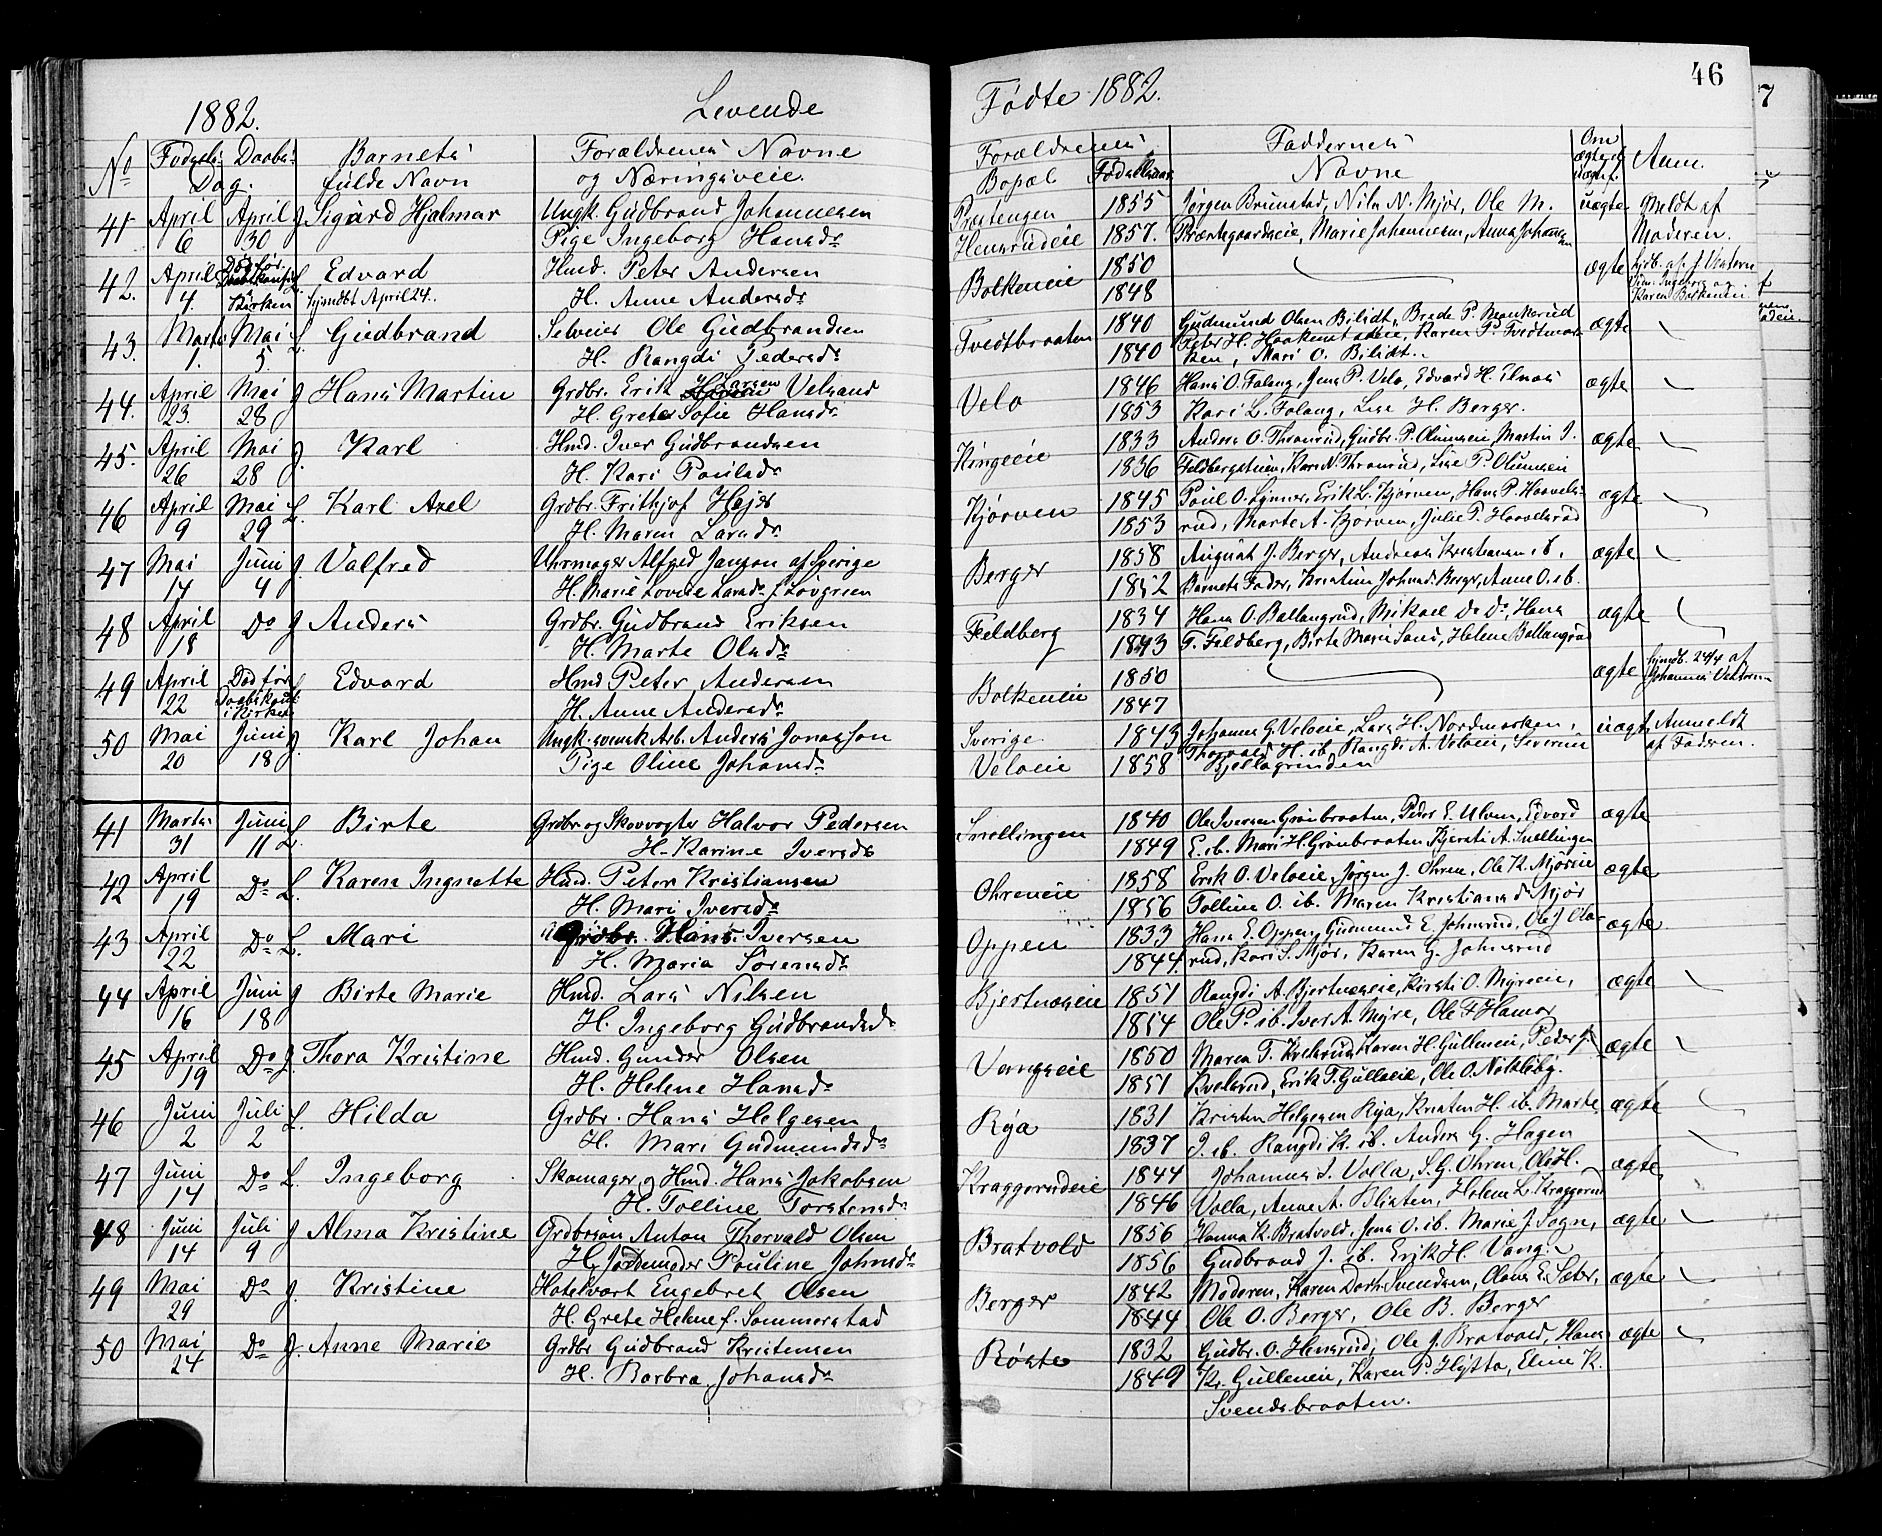 1882. Levende
Fødte 1882. 46
No Fødsels Daabs Barnets Forældrenes Navne
Dag. fulde Navn og Næringsveie.
Forældrenes Faddernes Om ægte el. uægte f. Anm.
Bopæl Fødselsaar Navne
41 April April J. Sigurd Hjalmar Ungk. Gudbrand Johannesen Præstengen 1855 Jørgen Brunstad, Nils N. Mjør, Ole M. uægte Meldt af
6 30 Pige Ingeborg Hansdr Hensrudeie 1857. Præstegaardseie, Marie Johannesen, Anna Johannesen Moderen.
42. April Død før Daabskauf. i Kirken L. Edvard Hmd. Peter Andersen Bolkeneie 1850 ægte
4 hjemdbt April 24. H. Anne Andersdr 1848 Karen Bolkeneie
43. Marts Mai L. Gudbrand Selveier Ole Gudbrandsen Tvedtbraaten 1840 Gudmund Olsen Bilidt, Brede P. ægte
1. 5. H. Rangdi Pedersdr 1840 Mari O. Bilidt.
44. April Mai J Hans Martin Grdbr. Erik Larsen Velsand Velo 1846 Hans O. Falang, Jens P. Velo, Edvard H. Elnæs ægte
23. 28 H. Grete Sofie Hansdr 1853 Kari L. Falang, Lise H. Berger.
45. April Mai J. Karl Hmd. Iver Gudbrandsen Ringeie 1833 Anders O. Thronrud, Gudbr. P. Olumseie, Martin J. ægte
26 28 H. Kari Paulsdr 1836 Feldbergstuen, Kari N. Thronrud, Lise P. Olumseie
46 April Mai L. Karl Axel Grdbr. Fritkjof Hejer Kjørven 1845 Poul O. Lynnes, Erik L. Kjørven, Hans P. Haavels- ægte
9 29 H. Maren Larsdr 1853 rud, Marte A. Kjørven, Julie P. Haavelsrud
47 Mai Juni J. Valfred Uhrmager Alfred Janson af Sverige Berger 1858 August J. Berger, Andreas Kristiansen ib. ægte
14 4 H. Marie Lovise Larsdr f. Løvgreen 1852 Barnets Fader, Kristine Johnsd. Berger, Anne O. ib.
48 April Do J Anders Grdbr. Gudbrand Eriksen Feldberg 1834 Hans O. Ballangrud, Mikael Do Do, Hans ægte
18 H. Marte Olsdr 1843 T. Feldberg, Birte Marie Sand, Helene Ballangrud
49 April Død før Daabskauf. i Kirken L Edvard Hmd Peter Andersen Bolkeneie 1850 ægte hjemdb. 24/4 af
22 H. Anne Andersdr 1847 Johannes Vestern
50 Mai Juni J. Karl Johan Ungk. svensk Arb. Anders Jonasson Sverige. 1849 Johannes G. Veloeie, Lars H. Nordmarken, uægte Anmeldt
20 18 Pige Oline Johansdr Veloeie 1858 Thorvald H. ib. Rangdi A. Veloeie, Severine Kjellagrinden af Faderen.
41 Marts Juni L Birte Grdbr og Skovvogter Halvor Pedersen Snellingen 1840 Ole Iversen Grønbraaten, Peder E. Ulven, Edvard ægte
31 11 H. Karine Iversdr 1849 E. ib. Mari H. Grønbraaten Kjersti A. Snellingen
42 April Do L. Karen Ingnette Hmd. Peter Kristiansen Ohreneie 1858 Erik O. Veloeie, Jørgen J. Ohren, Ole K. Mjøreie ægte
19 H. Mari Iversdr 1856 Polline O. ib. Maren Kristiansd. Mjør
43 April Do L. Mari Grdbr. Hans Iversen Oppen 1833 Hans E. Oppen, Gudmund E. Johnsrud, Ole J. Olas- ægte
22 H. Maria Sørensdr 1844. rud, Kari S. Mjør, Karen G. Johnsrud
44 April Juni J Birte Marie Hmd. Lars Nilsen Bjertnæseie 1851 Rangdi A. Bjertnæseie, Kirsti O. Myreeie, ægte
16 18 H. Ingeborg Gudbrandsdr 1854 Ole P. ib. Iver A. Myre, Ole F. Hamar
45 April Do J. Thora Kristine Hmd. Gunder Olsen Vangseie 1850 Maren T. Kvelsrud, Karen H. Gulleneie, Peder G. ægte
19 H. Helene Hansdr 1851 Kvelsrud, Erik T. Gulleneie, Ole O. Nøkleby.
46 Juni Juli L. Hilda Grdbr. Hans Helgesen Rya 1831 Kristen Helgesen Rya, Kristen H. ib. Marte ægte
2 2 H. Mari Gudmundsdr 1837 J. ib. Rangdi K. ib. Anders G. Hagen
47 Juni Do L. Ingeborg Skomager og Hmd. Hans Jakobsen Kraggerudeie 1844 Johannes S. Volla, S. G. Ohren, Ole H. ægte
14 H. Polline Torstensdr 1846 Volla, Anne A. Blisten, Helene L. Kraggerud
48 Juni Juli J Alma Kristine Grdbrsøn Anton Thorvald Olsen Bratvold 1856 Hanna K. Bratvold, Jens O. ib. Marie J. Sogn, ægte
14 9 H. Jordmoder Pauline Johnsdr 1856 Gudbrand J. ib. Erik H. Vang.
49 Mai Do J. Kristine Hotelvært Engebret Olsen Berger 1842 Moderen, Karen Dorth. Svendsen, Olava E. Sæter, ægte
29 H. Grete Helene f. Sommerstad 1844 Ole O. Berger, Ole B. Berger
50 Mai Do J. Anne Marie Grdbr Gudbrand Kristensen Røste 1832 Gudbr. O. Hensrud, Ole J. Bratvold, Hans ægte
24 H. Barbra Johansdr 1849 Kr. Gulleneie, Karen P. Hytta, Eline K.
Svendsbraaten.